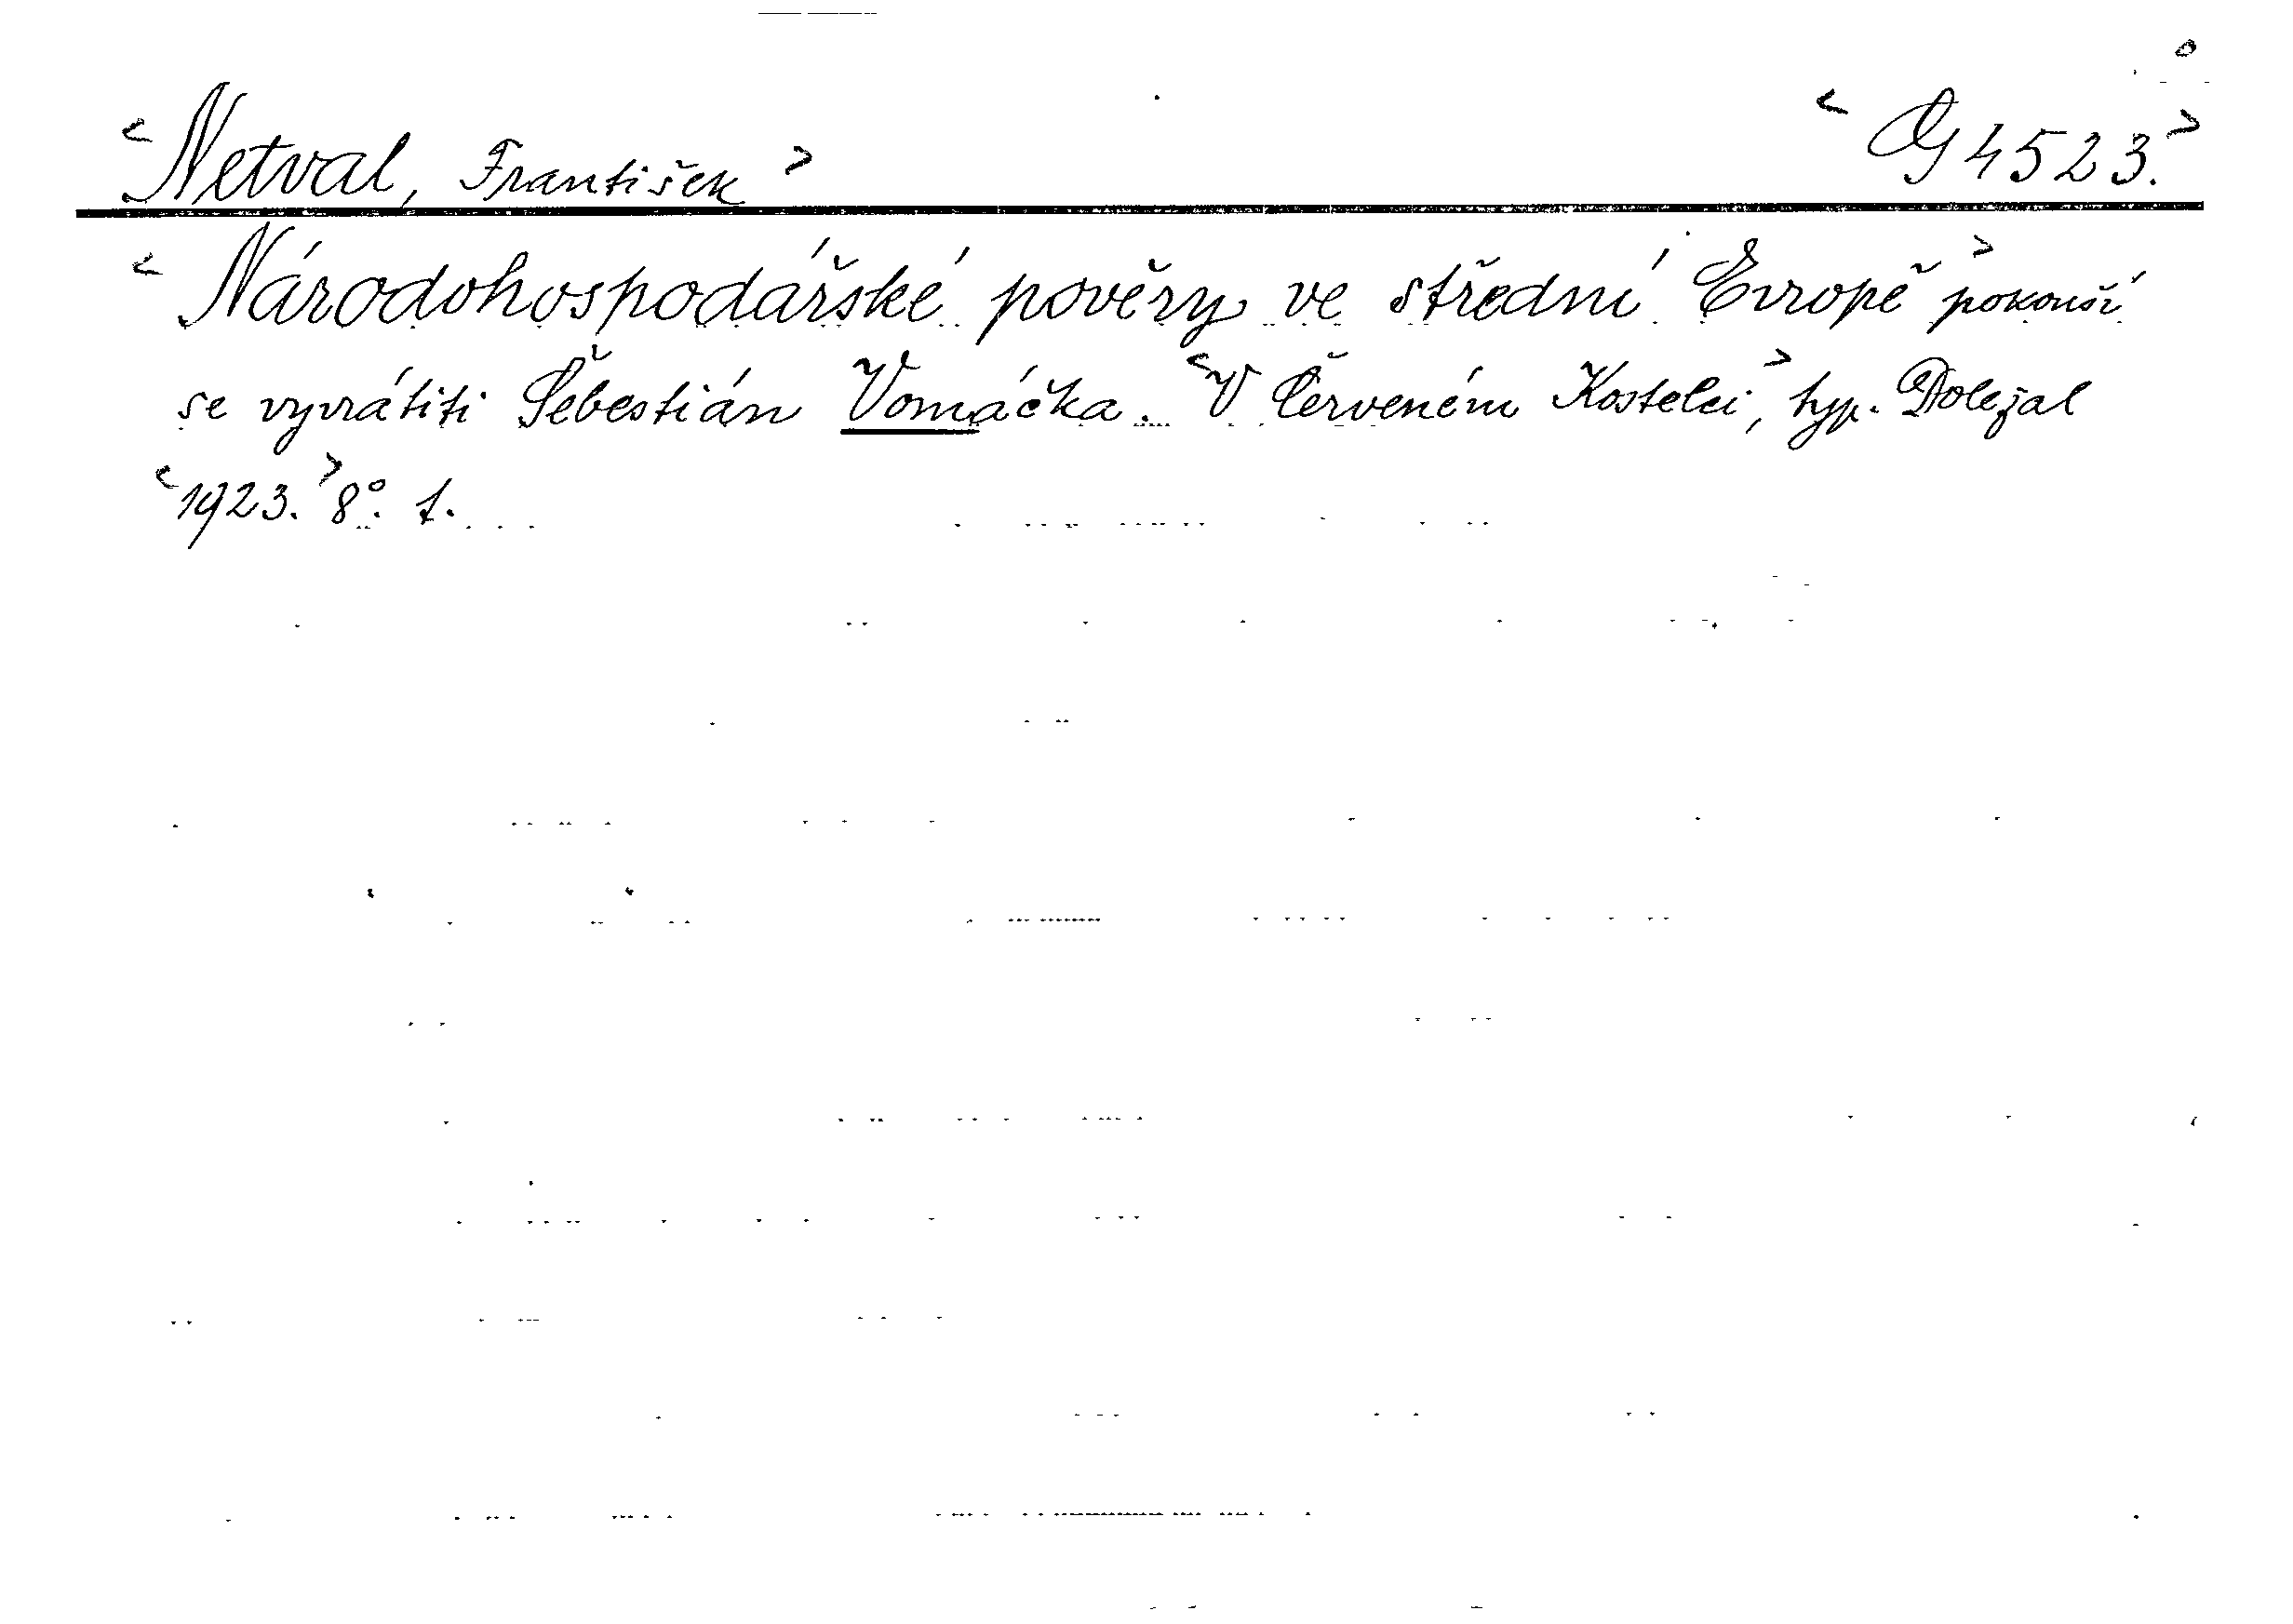 <Netval, František> <G 4523.>
<Národohospodářské pověry ve střední Evropě> pokouší
se vyvrátiti Šebestián Vomáčka. <V Červeném Kostelci>, typ. Doležal
<1923.> 8°. 1.